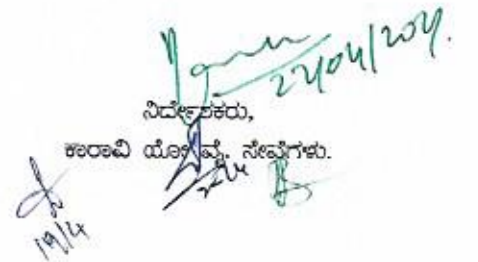 22/04/204.
ನಿರ್ದೇಶಕರು,
ಕಾರಾವಿ ಯೋ ವೈ. ಸೇವೆಗಳು.
19/4